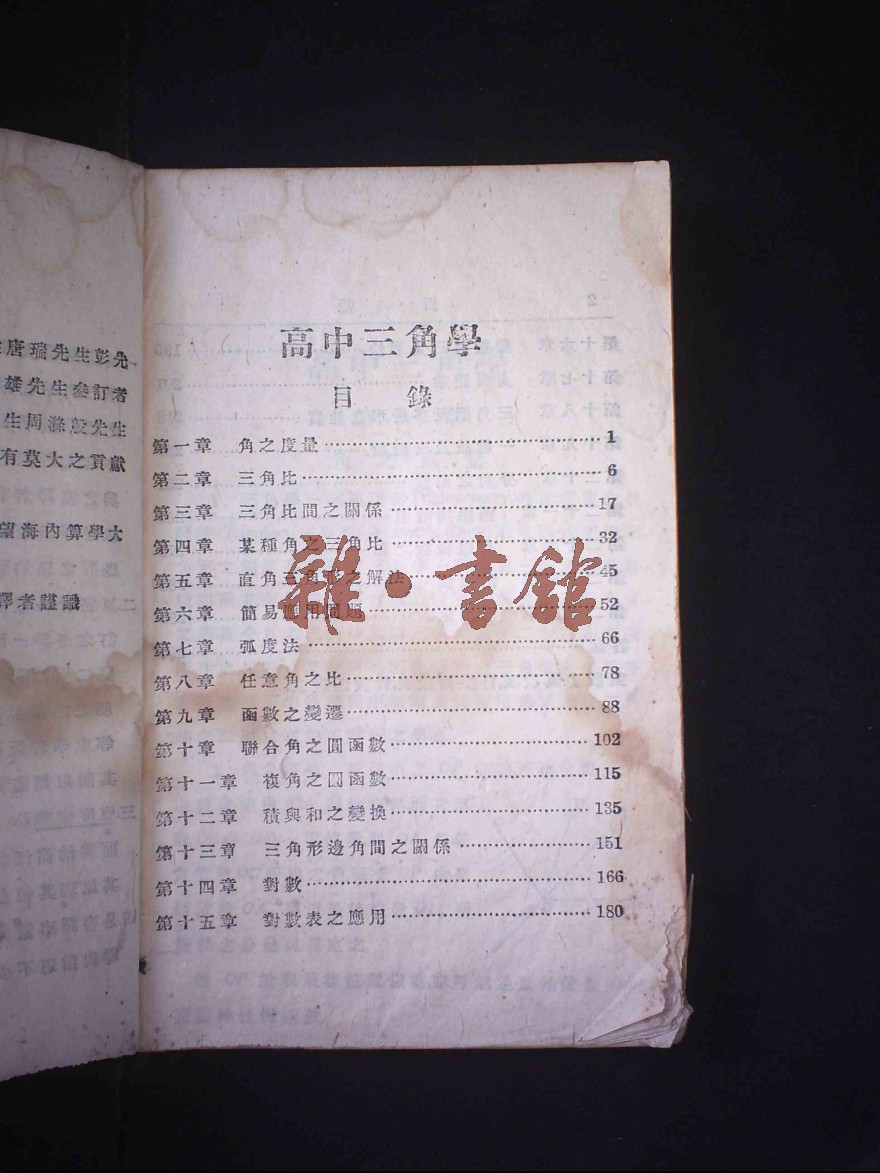 唐瑞先生彭先
雄先生參訂者
生周滌殷先生
有莫大之貢獻
望海內算學大
譯者謹識
高中三角學
目錄
第一章 角之度量 1
第二章 三角比 6
第三章 三角比間之關係 17
第四章 某種角之三角比 32
第五章 直角三角形之解法 45
第六章 簡易應用問題 52
第七章 弧度法 66
第八章 任意角之比 78
第九章 函數之變遷 88
第十章 聯合角之圓函數 102
第十一章 複角之圓函數 115
第十二章 積與和之變換 135
第十三章 三角形邊角間之關係 151
第十四章 對數 166
第十五章 對數表之應用 180
雜·書館